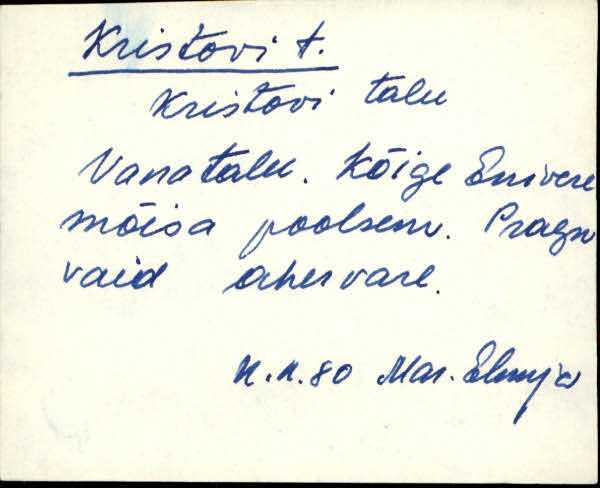 Kristovi t.
Kristovi talu
Vana talu. Kõige Enivere
mõisa poolsem. Praegu
vaid ahervare.
K.K.80 Mar. Elmja